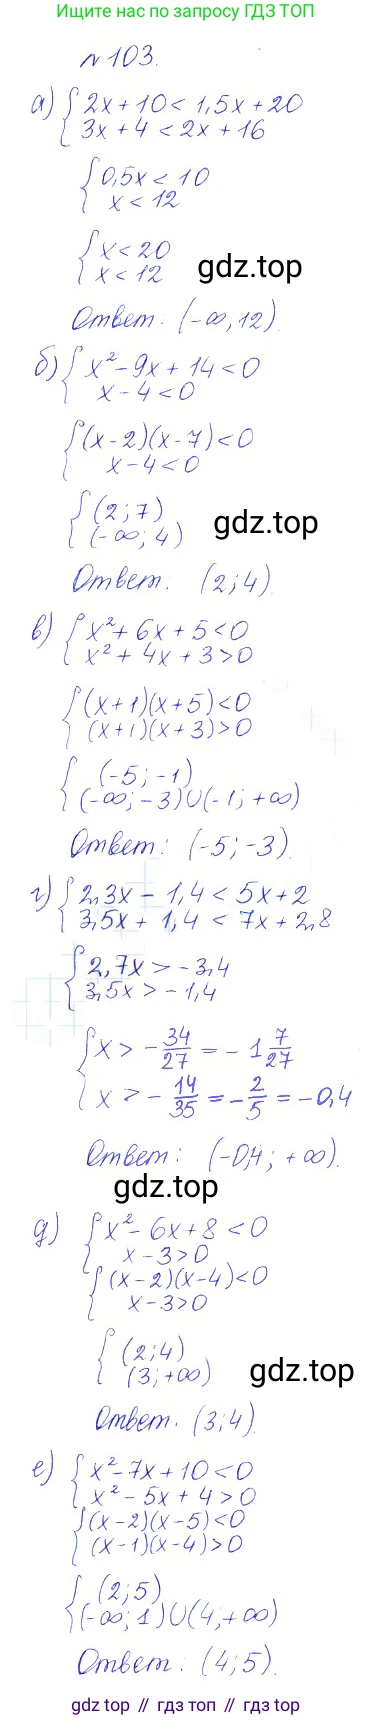 Ищите нас по запросу ГДЗ ТОП
№103.
а) { 2x + 10 < 1,5x + 20
3x + 4 < 2x + 16
{ 0,5x < 10
x < 12
{ x < 20
x < 12
gdz.top
Ответ: (-∞, 12).
б) { x² - 9x + 14 < 0
x - 4 < 0
{ (x - 2)(x - 7) < 0
x - 4 < 0
{ (2; 7)
(-∞; 4)
gdz.top
Ответ: (2; 4).
в) { x² + 6x + 5 < 0
x² + 4x + 3 > 0
{ (x + 1)(x + 5) < 0
(x + 1)(x + 3) > 0
{ (-5; -1)
(-∞; -3)∪(-1; +∞)
Ответ: (-5; -3).
г) { 2,3x - 1,4 < 5x + 2
3,5x + 1,4 < 7x + 2,8
{ 2,7x > -3,4
3,5x > -1,4
{ x > -34/27 = -1 7/27
x > -14/35 = -2/5 = -0,4
Ответ: (-0,4; +∞).
gdz.top
д) { x² - 6x + 8 < 0
x - 3 > 0
{ (x - 2)(x - 4) < 0
x - 3 > 0
{ (2; 4)
(3; +∞)
gdz.top
Ответ: (3; 4).
е) { x² - 7x + 10 < 0
x² - 5x + 4 > 0
{ (x - 2)(x - 5) < 0
(x - 1)(x - 4) > 0
{ (2; 5)
(-∞; 1)∪(4; +∞)
Ответ: (4; 5).
gdz top // гдз топ // gdz top